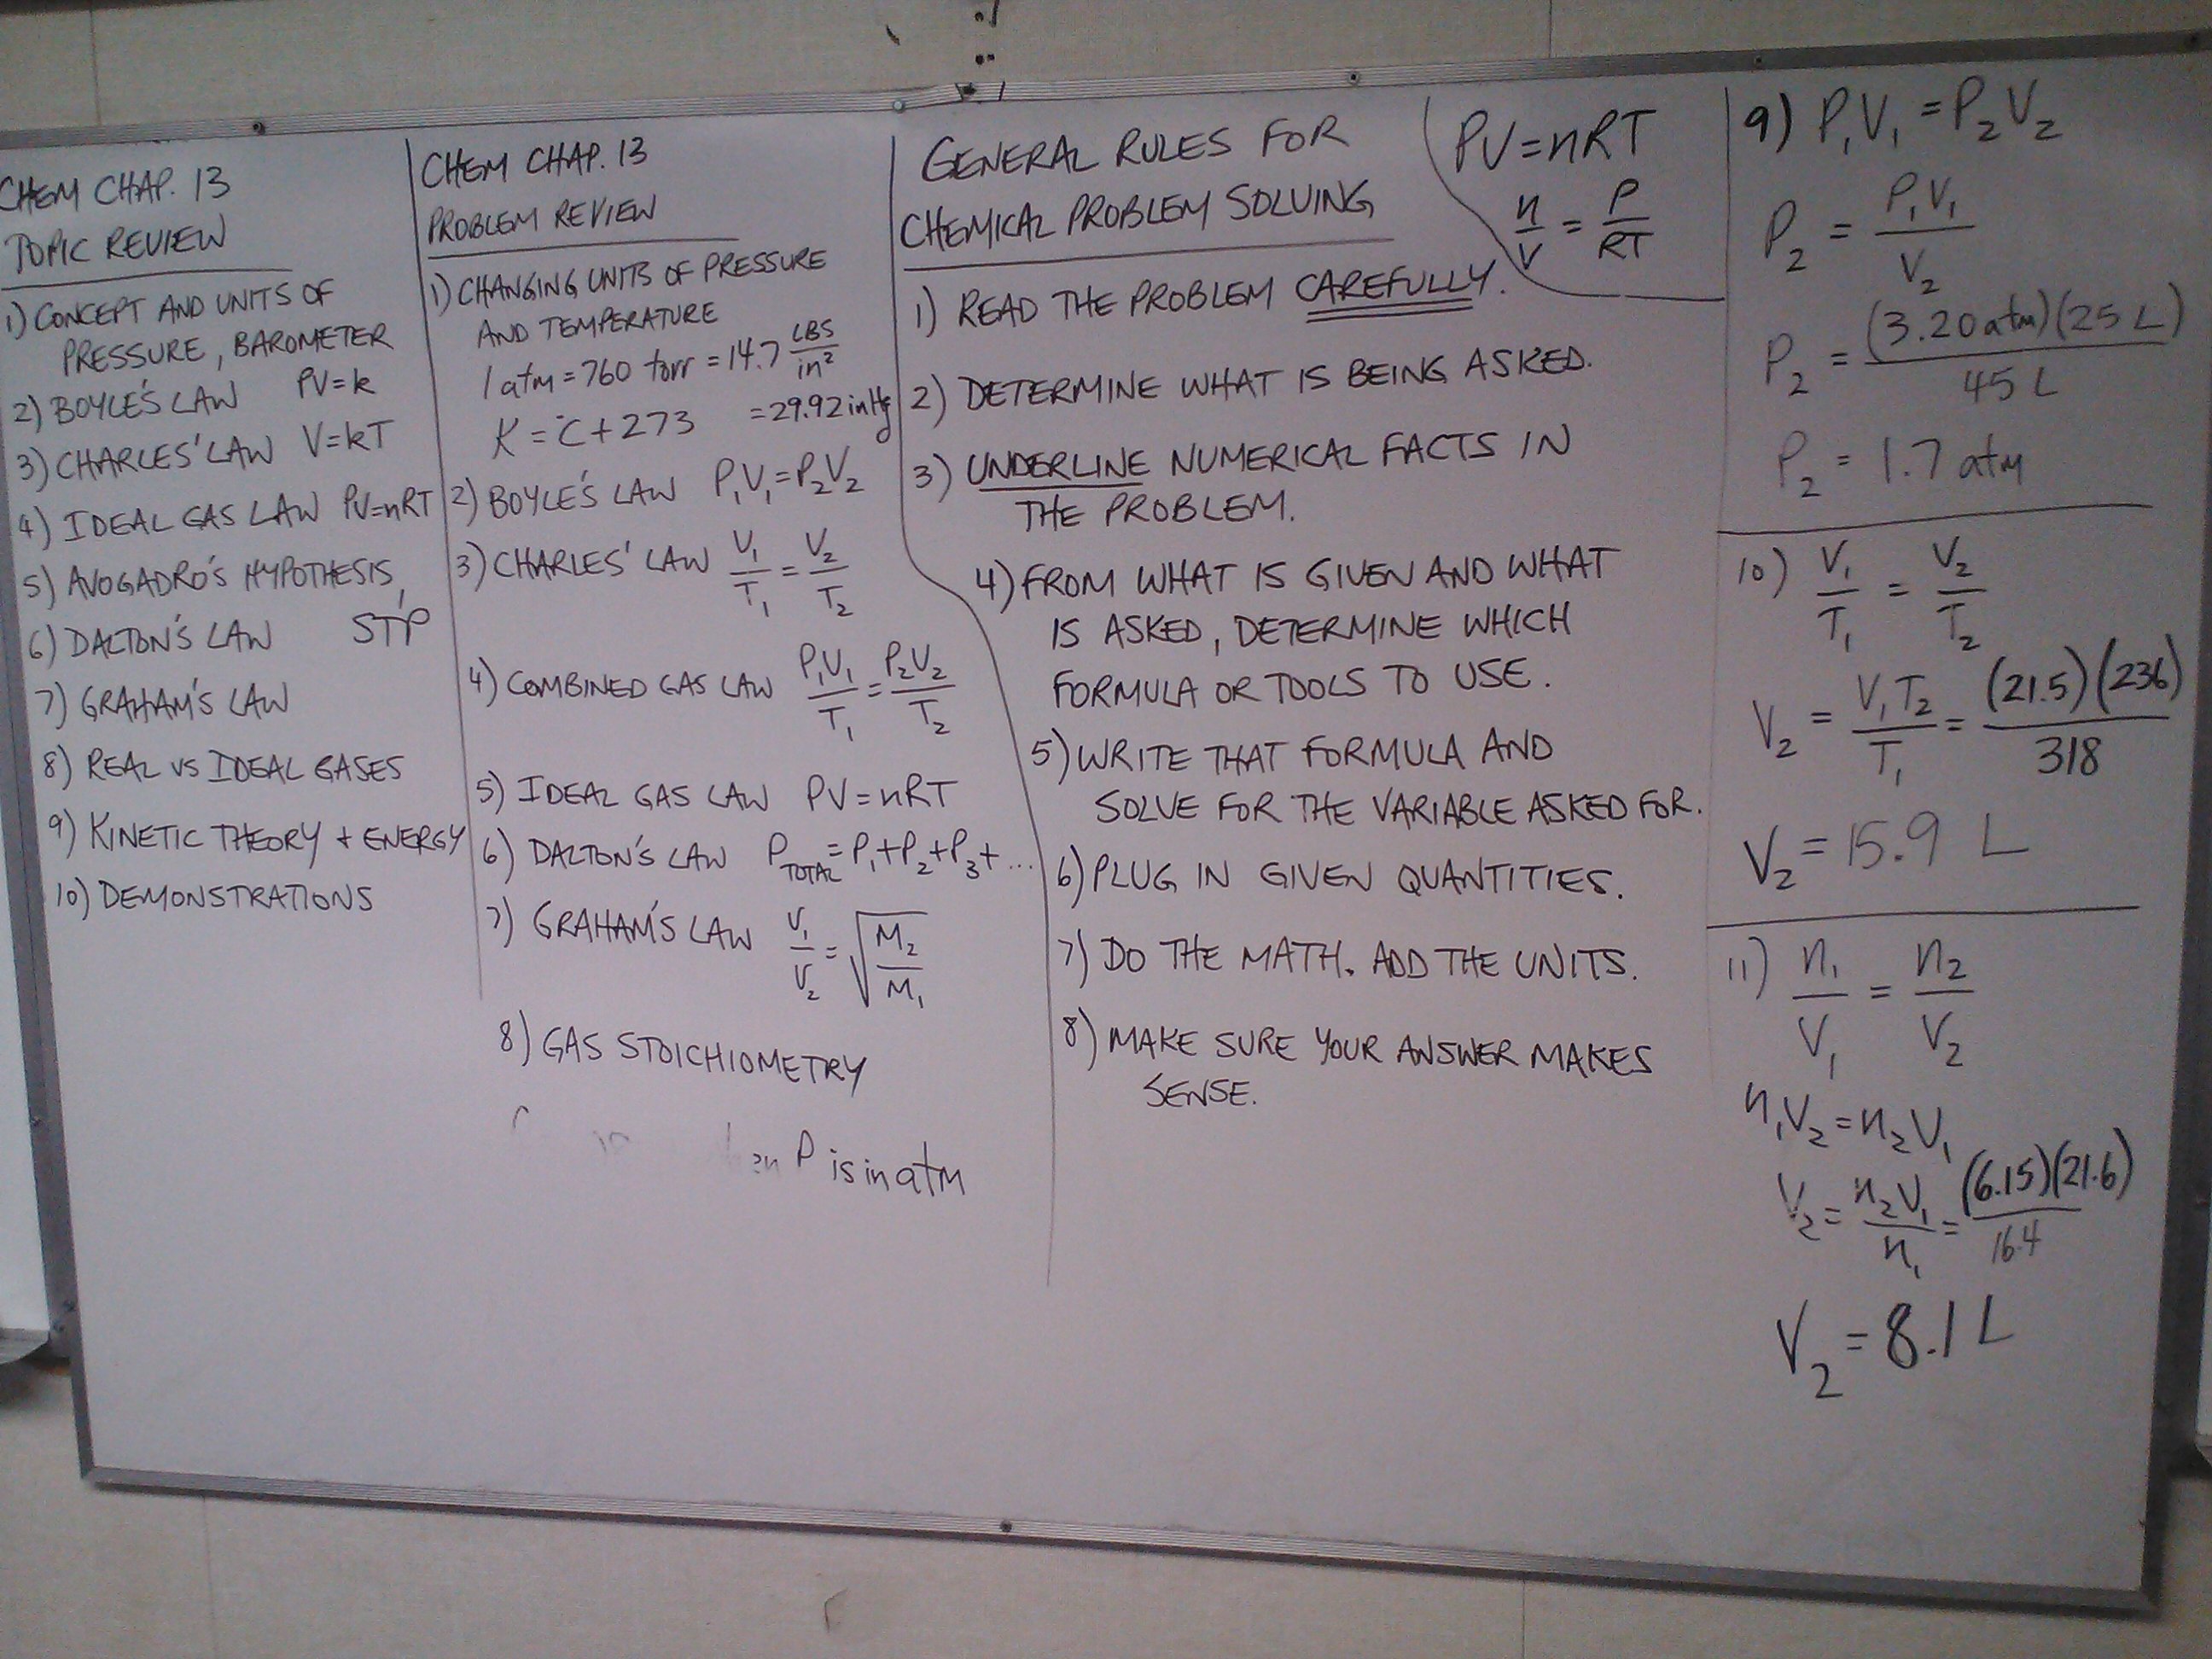 CHEM CHAP. 13
TOPIC REVIEW
1) CONCEPT AND UNITS OF
PRESSURE, BAROMETER
2) BOYLE'S LAW PV=k
3) CHARLES' LAW V=kT
4) IDEAL GAS LAW PV=nRT
5) AVOGADRO'S HYPOTHESIS,
STP
6) DALTON'S LAW
7) GRAHAM'S LAW
8) REAL VS IDEAL GASES
9) KINETIC THEORY + ENERGY
10) DEMONSTRATIONS
CHEM CHAP. 13
PROBLEM REVIEW
1) CHANGING UNITS OF PRESSURE
AND TEMPERATURE
1 atm = 760 torr = 14.7 LBS/in²
= 29.92 in Hg
K = °C + 273
2) BOYLE'S LAW P₁V₁=P₂V₂
3) CHARLES' LAW V₁/T₁ = V₂/T₂
4) COMBINED GAS LAW P₁V₁/T₁ = P₂V₂/T₂
5) IDEAL GAS LAW PV=nRT
6) DALTON'S LAW P_TOTAL = P₁+P₂+P₃+...
7) GRAHAM'S LAW V₁/V₂ = √(M₂/M₁)
8) GAS STOICHIOMETRY
P is in atm
GENERAL RULES FOR
CHEMICAL PROBLEM SOLVING
1) READ THE PROBLEM CAREFULLY.
2) DETERMINE WHAT IS BEING ASKED.
3) UNDERLINE NUMERICAL FACTS IN
THE PROBLEM.
4) FROM WHAT IS GIVEN AND WHAT
IS ASKED, DETERMINE WHICH
FORMULA OR TOOLS TO USE.
5) WRITE THAT FORMULA AND
SOLVE FOR THE VARIABLE ASKED FOR.
6) PLUG IN GIVEN QUANTITIES.
7) DO THE MATH. ADD THE UNITS.
8) MAKE SURE YOUR ANSWER MAKES
SENSE.
PV=nRT
n/V = P/RT
9) P₁V₁ = P₂V₂
P₂ = P₁V₁/V₂
P₂ = (3.20 atm)(25 L)/45 L
P₂ = 1.7 atm
10) V₁/T₁ = V₂/T₂
V₂ = V₁T₂/T₁ = (21.5)(236)/318
V₂ = 15.9 L
11) n₁/V₁ = n₂/V₂
n₁V₂ = n₂V₁
V₂ = n₂V₁/n₁ = (6.15)(21.6)/16.4
V₂ = 8.1 L